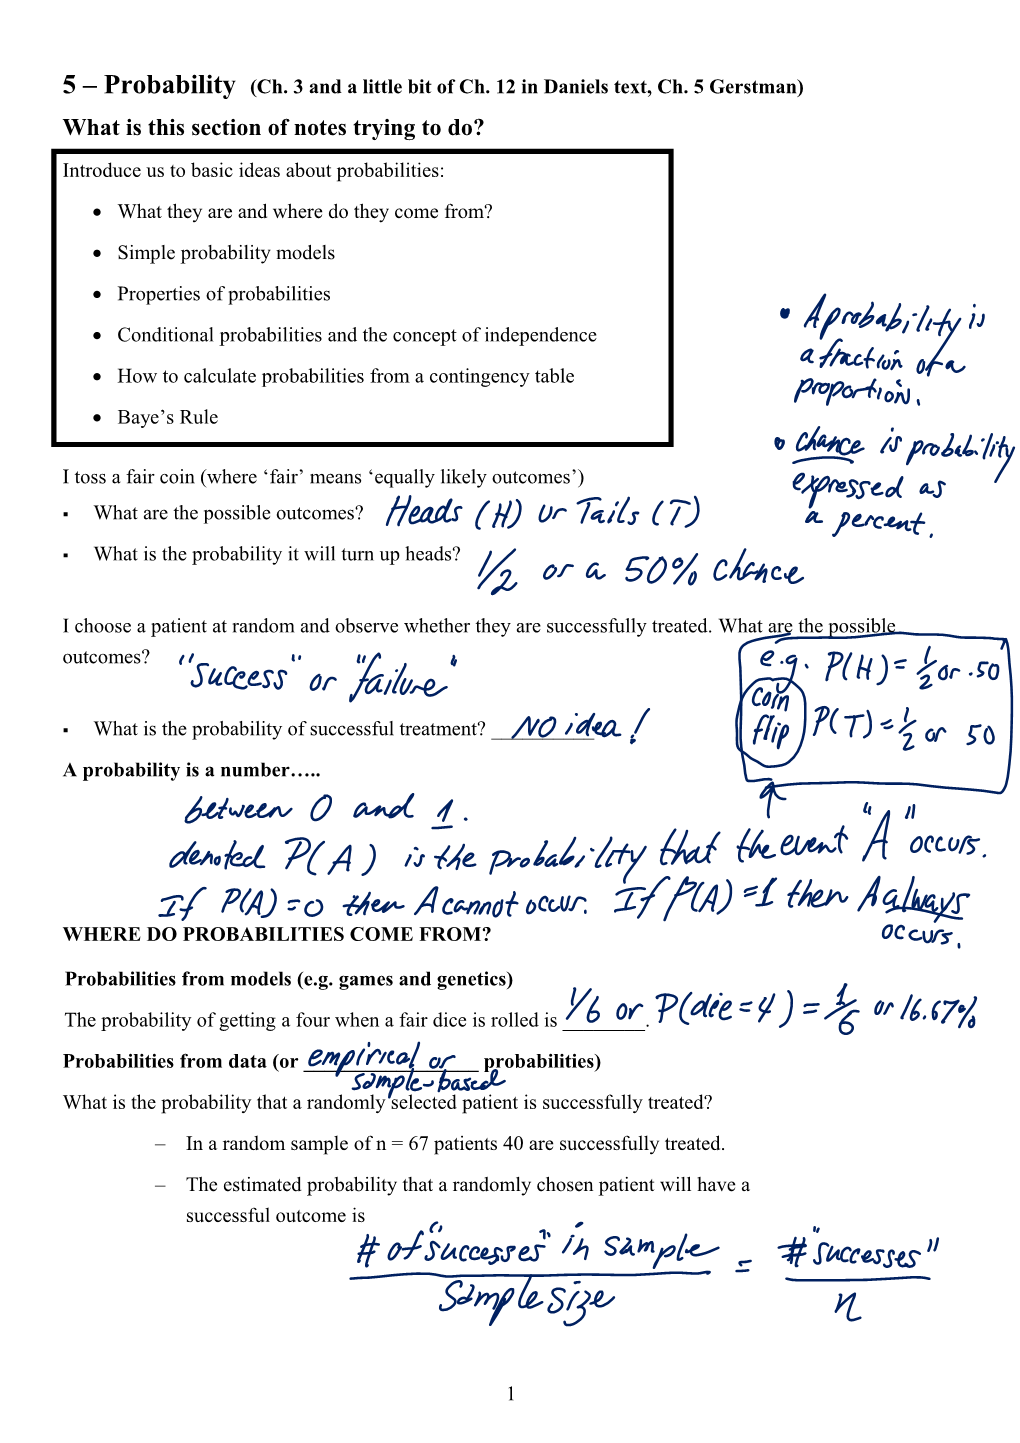 5 – Probability (Ch. 3 and a little bit of Ch. 12 in Daniels text, Ch. 5 Gerstman)
What is this section of notes trying to do?
Introduce us to basic ideas about probabilities:
• What they are and where do they come from?
• Simple probability models
• Properties of probabilities
• Conditional probabilities and the concept of independence
• How to calculate probabilities from a contingency table
• Baye’s Rule
• A probability is
a fraction of a
proportion.
• chance is probability
expressed as
a percent.
I toss a fair coin (where ‘fair’ means ‘equally likely outcomes’)
▪ What are the possible outcomes? Heads (H) or Tails (T)
▪ What is the probability it will turn up heads? 1/2 or a 50% chance
I choose a patient at random and observe whether they are successfully treated. What are the possible
outcomes? "success" or "failure"
e.g. P(H) = 1/2 or .50
coin
flip P(T) = 1/2 or 50
▪ What is the probability of successful treatment? __________ NO idea!
A probability is a number…..
between 0 and 1.
denoted P(A) is the probability that the event "A" occurs.
If P(A) = 0 then A cannot occur. If P(A) = 1 then A always
occurs.
WHERE DO PROBABILITIES COME FROM?
Probabilities from models (e.g. games and genetics)
The probability of getting a four when a fair dice is rolled is ________. 1/6 or P(die = 4) = 1/6 or 16.67%
Probabilities from data (or empirical or probabilities)
sample-based
What is the probability that a randomly selected patient is successfully treated?
– In a random sample of n = 67 patients 40 are successfully treated.
– The estimated probability that a randomly chosen patient will have a
successful outcome is
# of "successes" in sample = # "successes"
sample size n
1